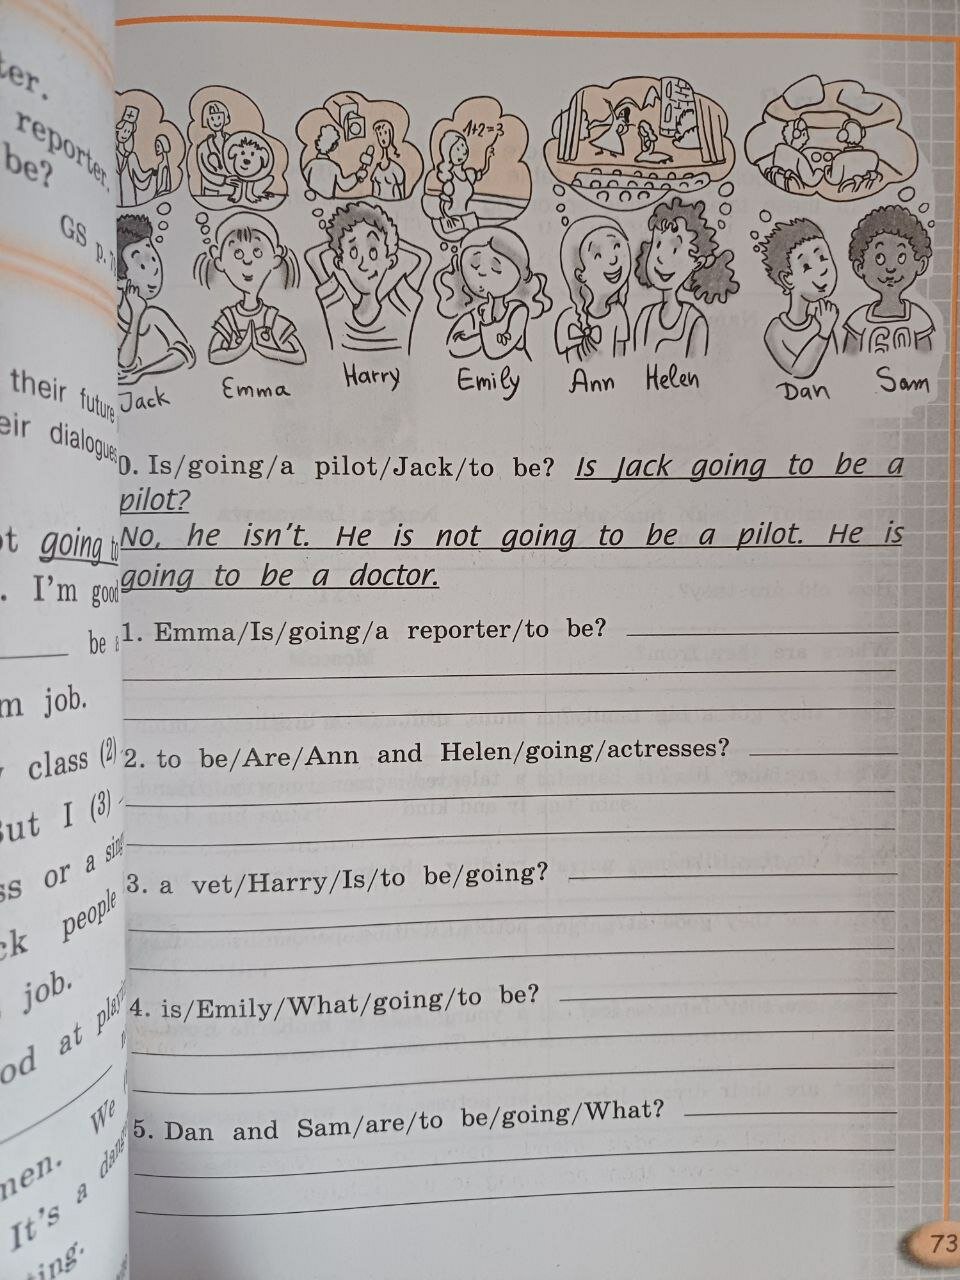 ter.
reporter.
be?
GS p. 7
their future
eir dialogues
going to
. I'm good
be a
m job.
class (2)
But I (3)
ss or a sing
ck people
job.
od at playi
We
men.
It's a dang
ting.
1+2=3
Jack Emma Harry Emily Ann Helen Dan Sam
0. Is/going/a pilot/Jack/to be? Is Jack going to be a
pilot?
No, he isn't. He is not going to be a pilot. He is
going to be a doctor.
1. Emma/Is/going/a reporter/to be?
2. to be/Are/Ann and Helen/going/actresses?
3. a vet/Harry/Is/to be/going?
4. is/Emily/What/going/to be?
5. Dan and Sam/are/to be/going/What?
73